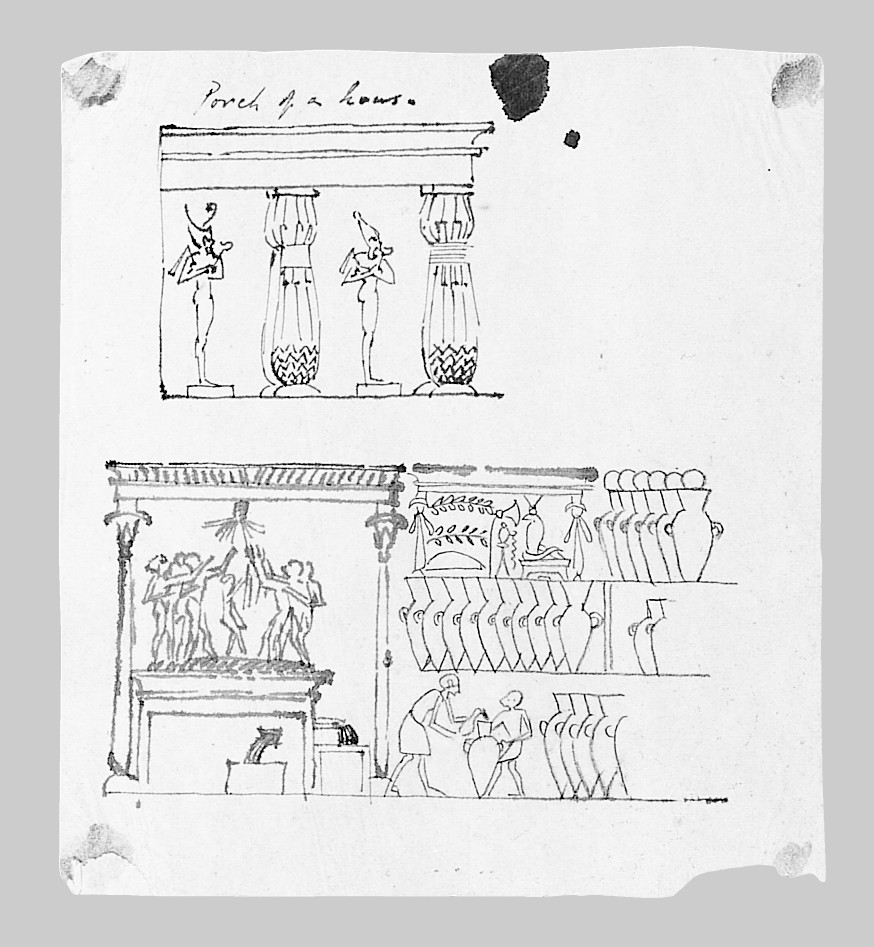 Porch of a house